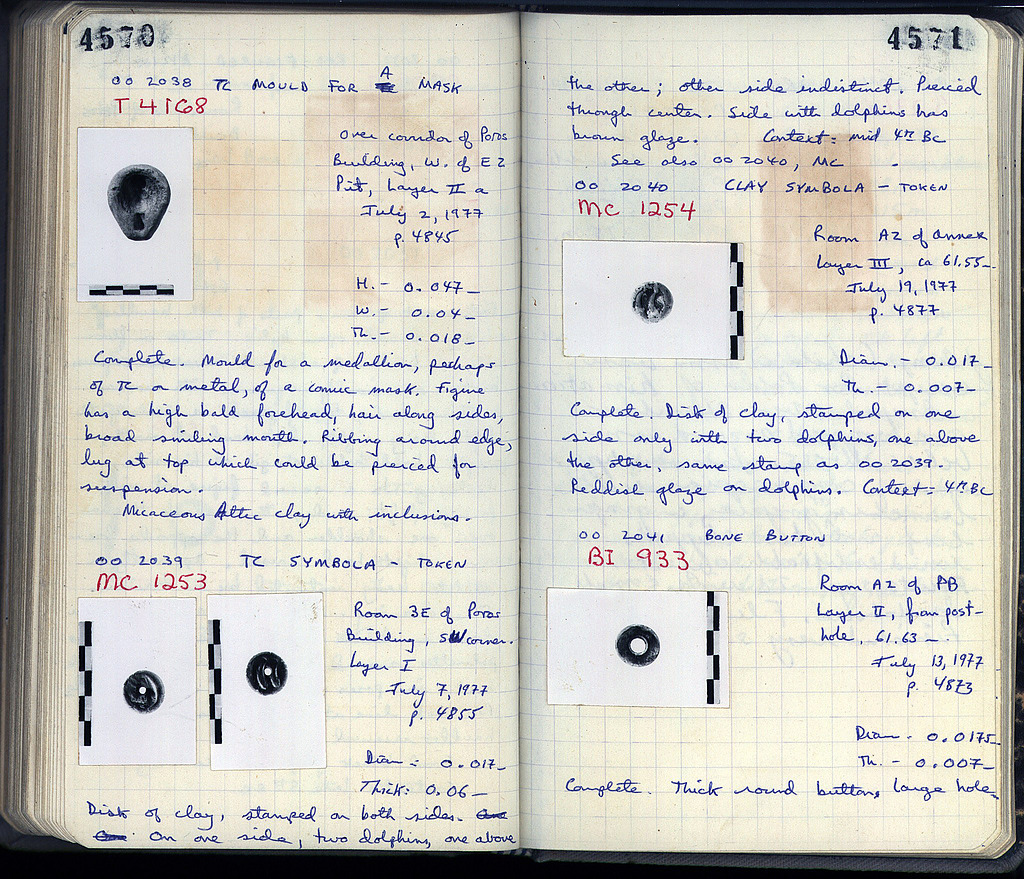 4570
OO 2038 TC MOULD FOR A MASK
T 4168
Over corridor of Poros
Building, W. of E 2
Pit, Layer II a
July 2, 1977
p. 4845
H. - 0.047
W. - 0.04
Th. - 0.018
Complete. Mould for a medallion, perhaps
of TC or metal, of a comic mask. Figure
has a high bald forehead, hair along sides,
broad smiling mouth. Ribbing around edge,
lug at top which could be pierced for
suspension.
Micaceous Attic clay with inclusions.
OO 2039 TC SYMBOLA - TOKEN
MC 1253
Room 3E of Poros
Building, SW corner.
Layer I
July 7, 1977
p. 4855
Diam = 0.017
Thick: 0.06
Disk of clay, stamped on both sides.
On one side, two dolphins, one above
4571
the other; other side indistinct. Pierced
through center. Side with dolphins has
brown glaze. Context: mid 4th BC
See also OO 2040, MC
OO 2040 CLAY SYMBOLA - TOKEN
MC 1254
Room A2 of Annex
Layer III, ca 61.55
July 19, 1977
p. 4877
Diam. - 0.017
Th. - 0.007
Complete. Disk of clay, stamped on one
side only with two dolphins, one above
the other, same stamp as OO 2039.
Reddish glaze on dolphins. Context: 4th BC
OO 2041 BONE BUTTON
BI 933
Room A2 of PB
Layer II, from post-
hole, 61.63
July 13, 1977
p. 4873
Diam - 0.0175
Th. - 0.007
Complete. Thick round button, large hole.